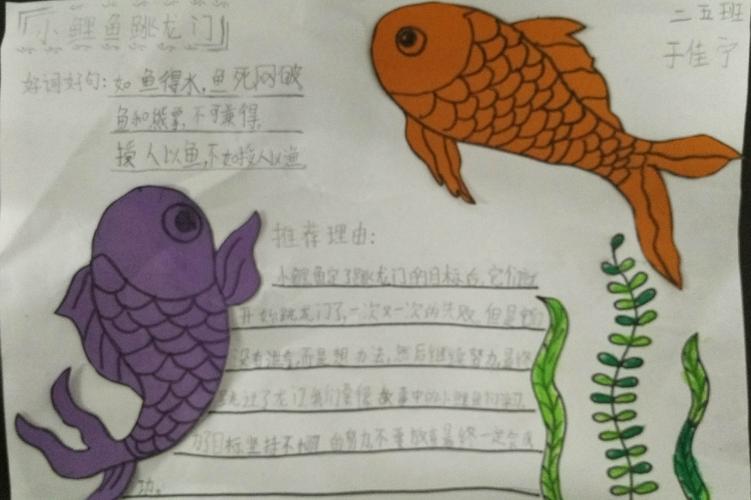 小鲤鱼跳龙门
二五班
于佳宁
好词好句:如鱼得水,鱼死网破
鱼和熊掌,不可兼得
授人以鱼,不如授人以渔
推荐理由:
小鲤鱼定了跳龙门的目标后,它们就
开始跳龙门了,一次又一次的失败,但是它们
没有沮丧,而是想办法,然后继续努力,最终
跳过了龙门,我们要像故事中的小鲤鱼们学习,
为了目标坚持不懈的努力不要放弃最终一定会成
功。